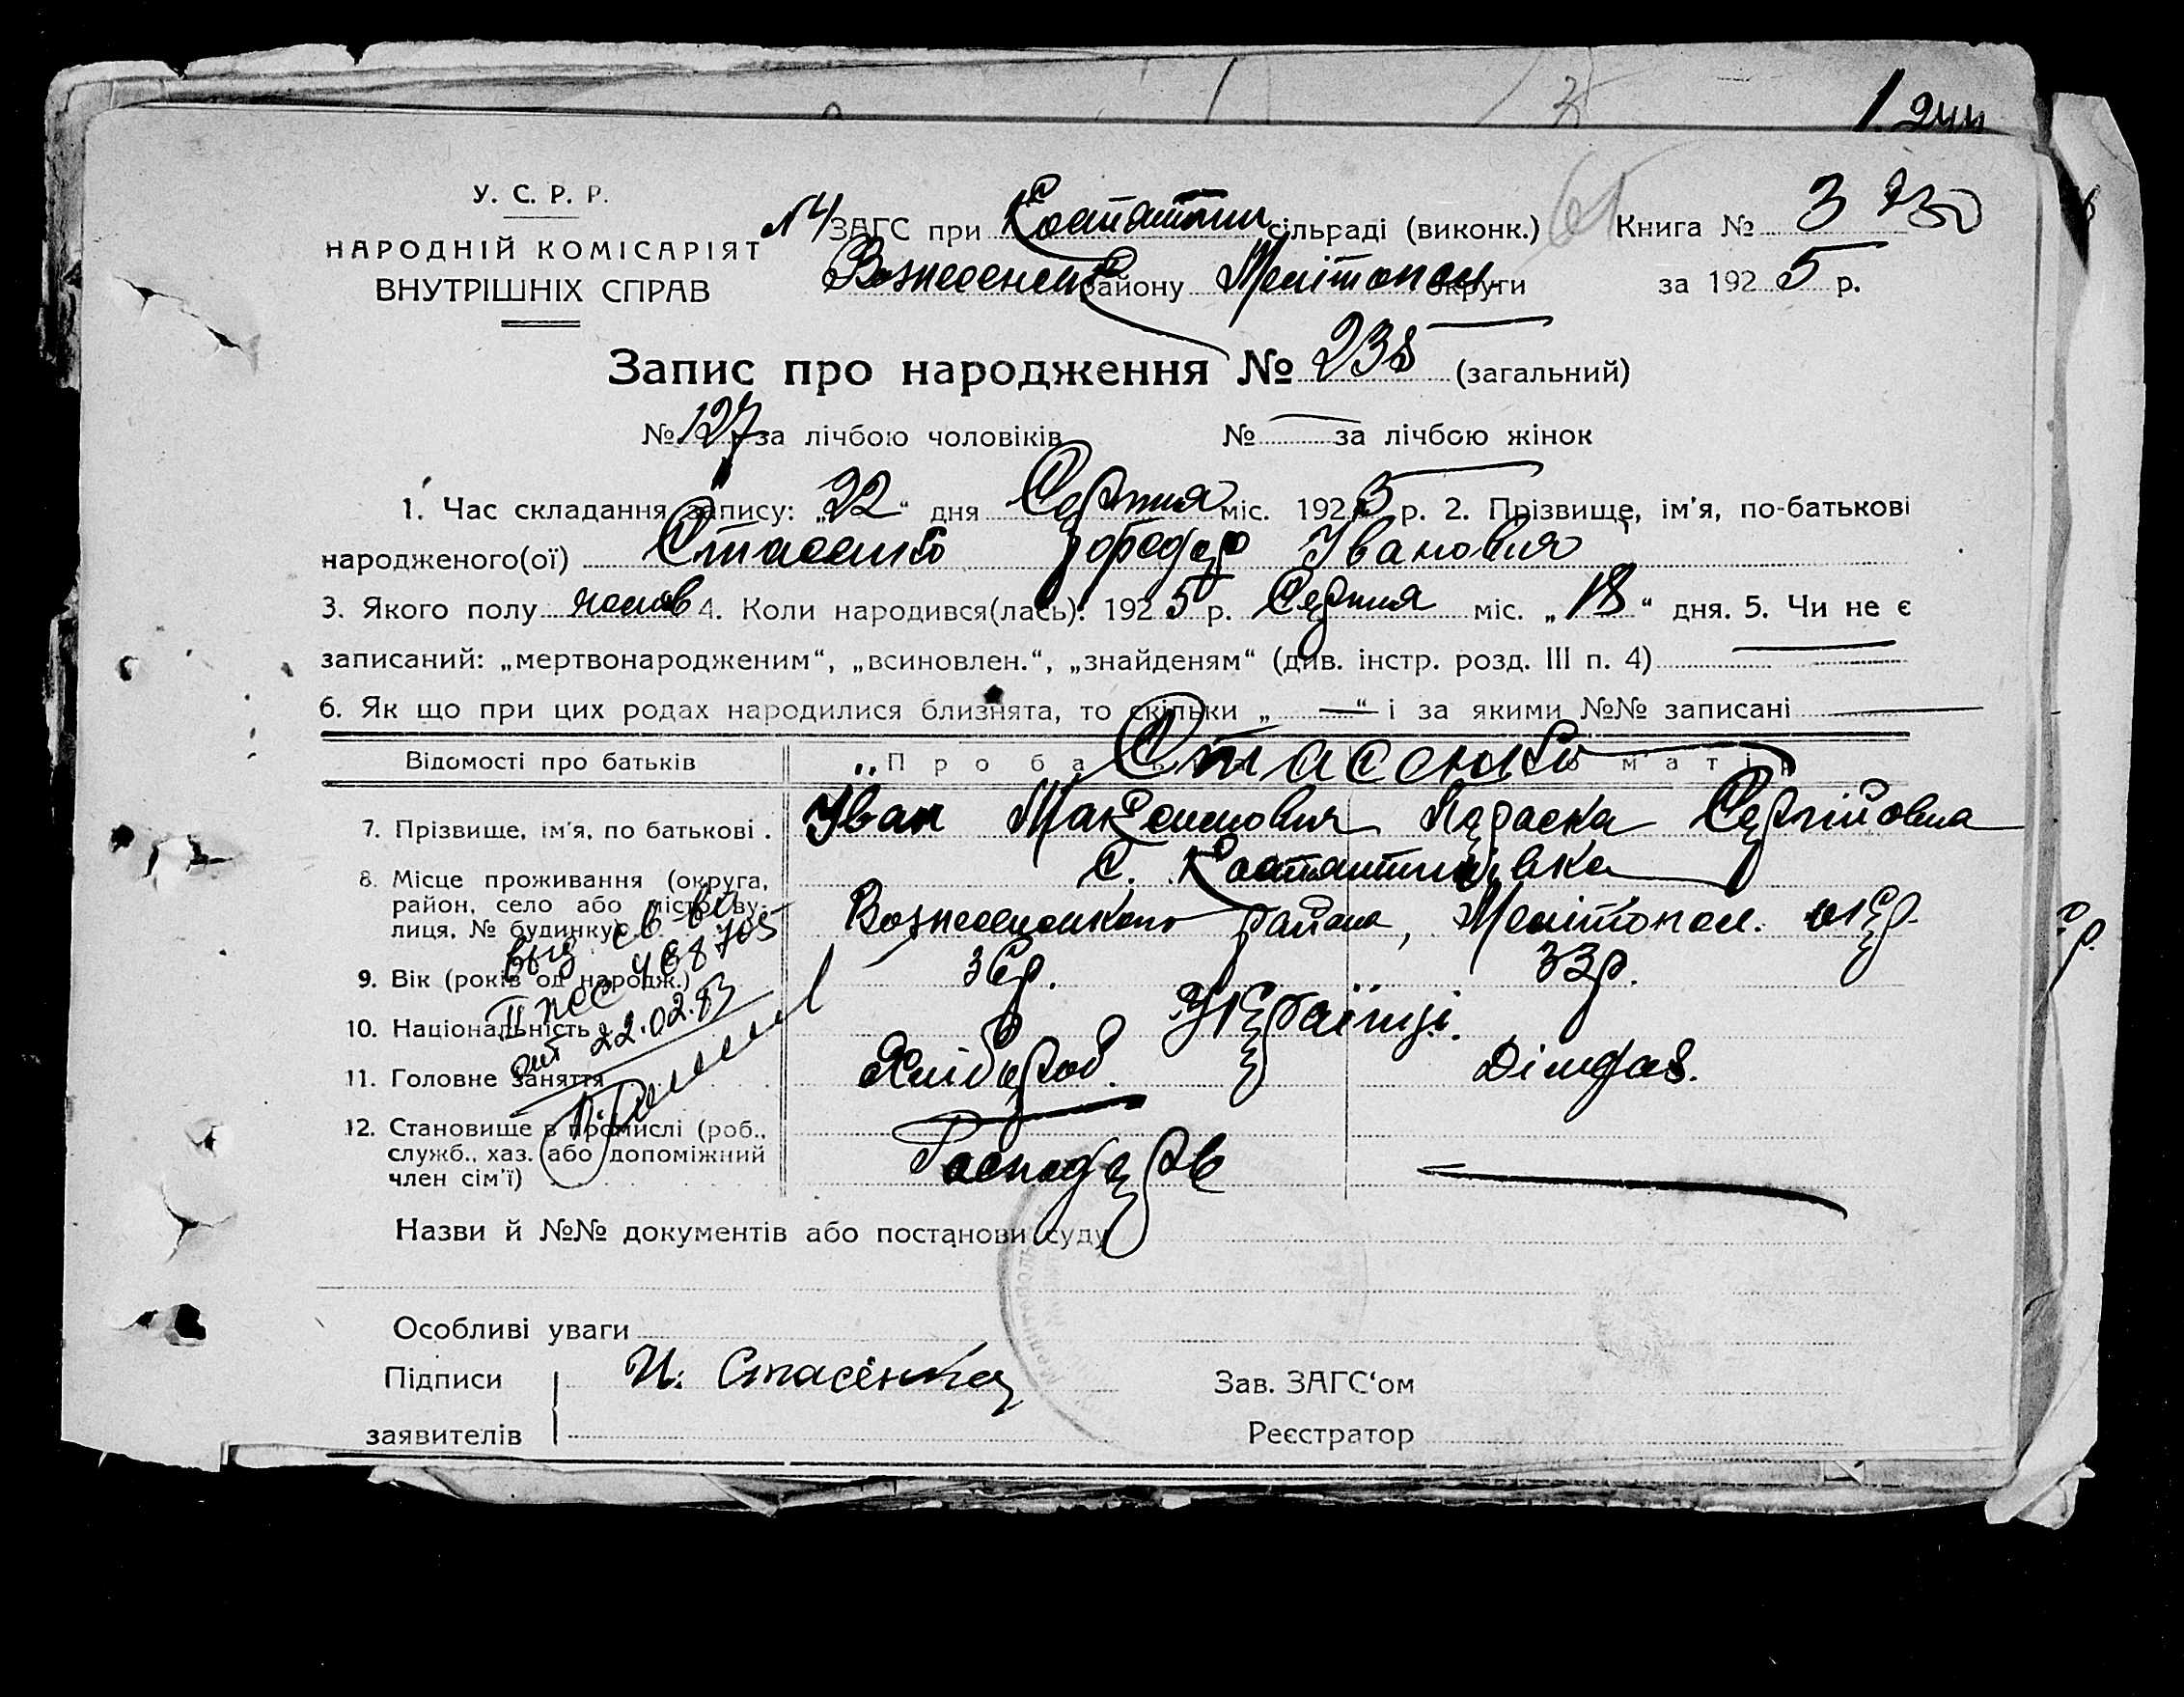 У. С. Р. Р.
НАРОДНІЙ КОМІСАРІЯТ
ВНУТРІШНІХ СПРАВ
ЗАГС при Костянтин сільраді (виконк.)
Вознесенськ району Мелітопол. округи
Книга № 3
за 1925 р.
Запис про народження № 238 (загальний)
№ 127 за лічбою чоловіків № — за лічбою жінок
1. Час складання запису: „22“ дня Серпня міс. 1925 р. 2. Прізвище, ім'я, по-батькові
народженого(ої) Стасенко Іванович
3. Якого полу чолов 4. Коли народився(лась): 1925 р. Серпня міс. „18“ дня. 5. Чи не є
записаний: „мертвонародженим“, „всиновлен.“, „знайденям“ (див. інстр. розд. III п. 4) —
6. Як що при цих родах народилися близнята, то скільки „ — “ і за якими №№ записані —
Відомості про батьків Про батька Стасенко Про матір
7. Прізвище, ім'я, по батькові . Іван Максимович Параска Сергійовна
8. Місце проживання (округа, район, село або місто, вулиця, № будинку) с. Костянтинівка
Вознесенського района, Мелітопол. окр.
9. Вік (років од народж.) 36р. 33р.
10. Національність Українці.
11. Головне заняття Хлібороб. Дімгос.
12. Становище в промислі (роб.,
служб., хаз. або допоміжний
член сім'ї) Господарь —
выд. св-во
22.02.83
Назви й №№ документів або постанови суду
Особливі уваги
Підписи И. Стасенко Зав. ЗАГС‘ом
заявителів Реєстратор